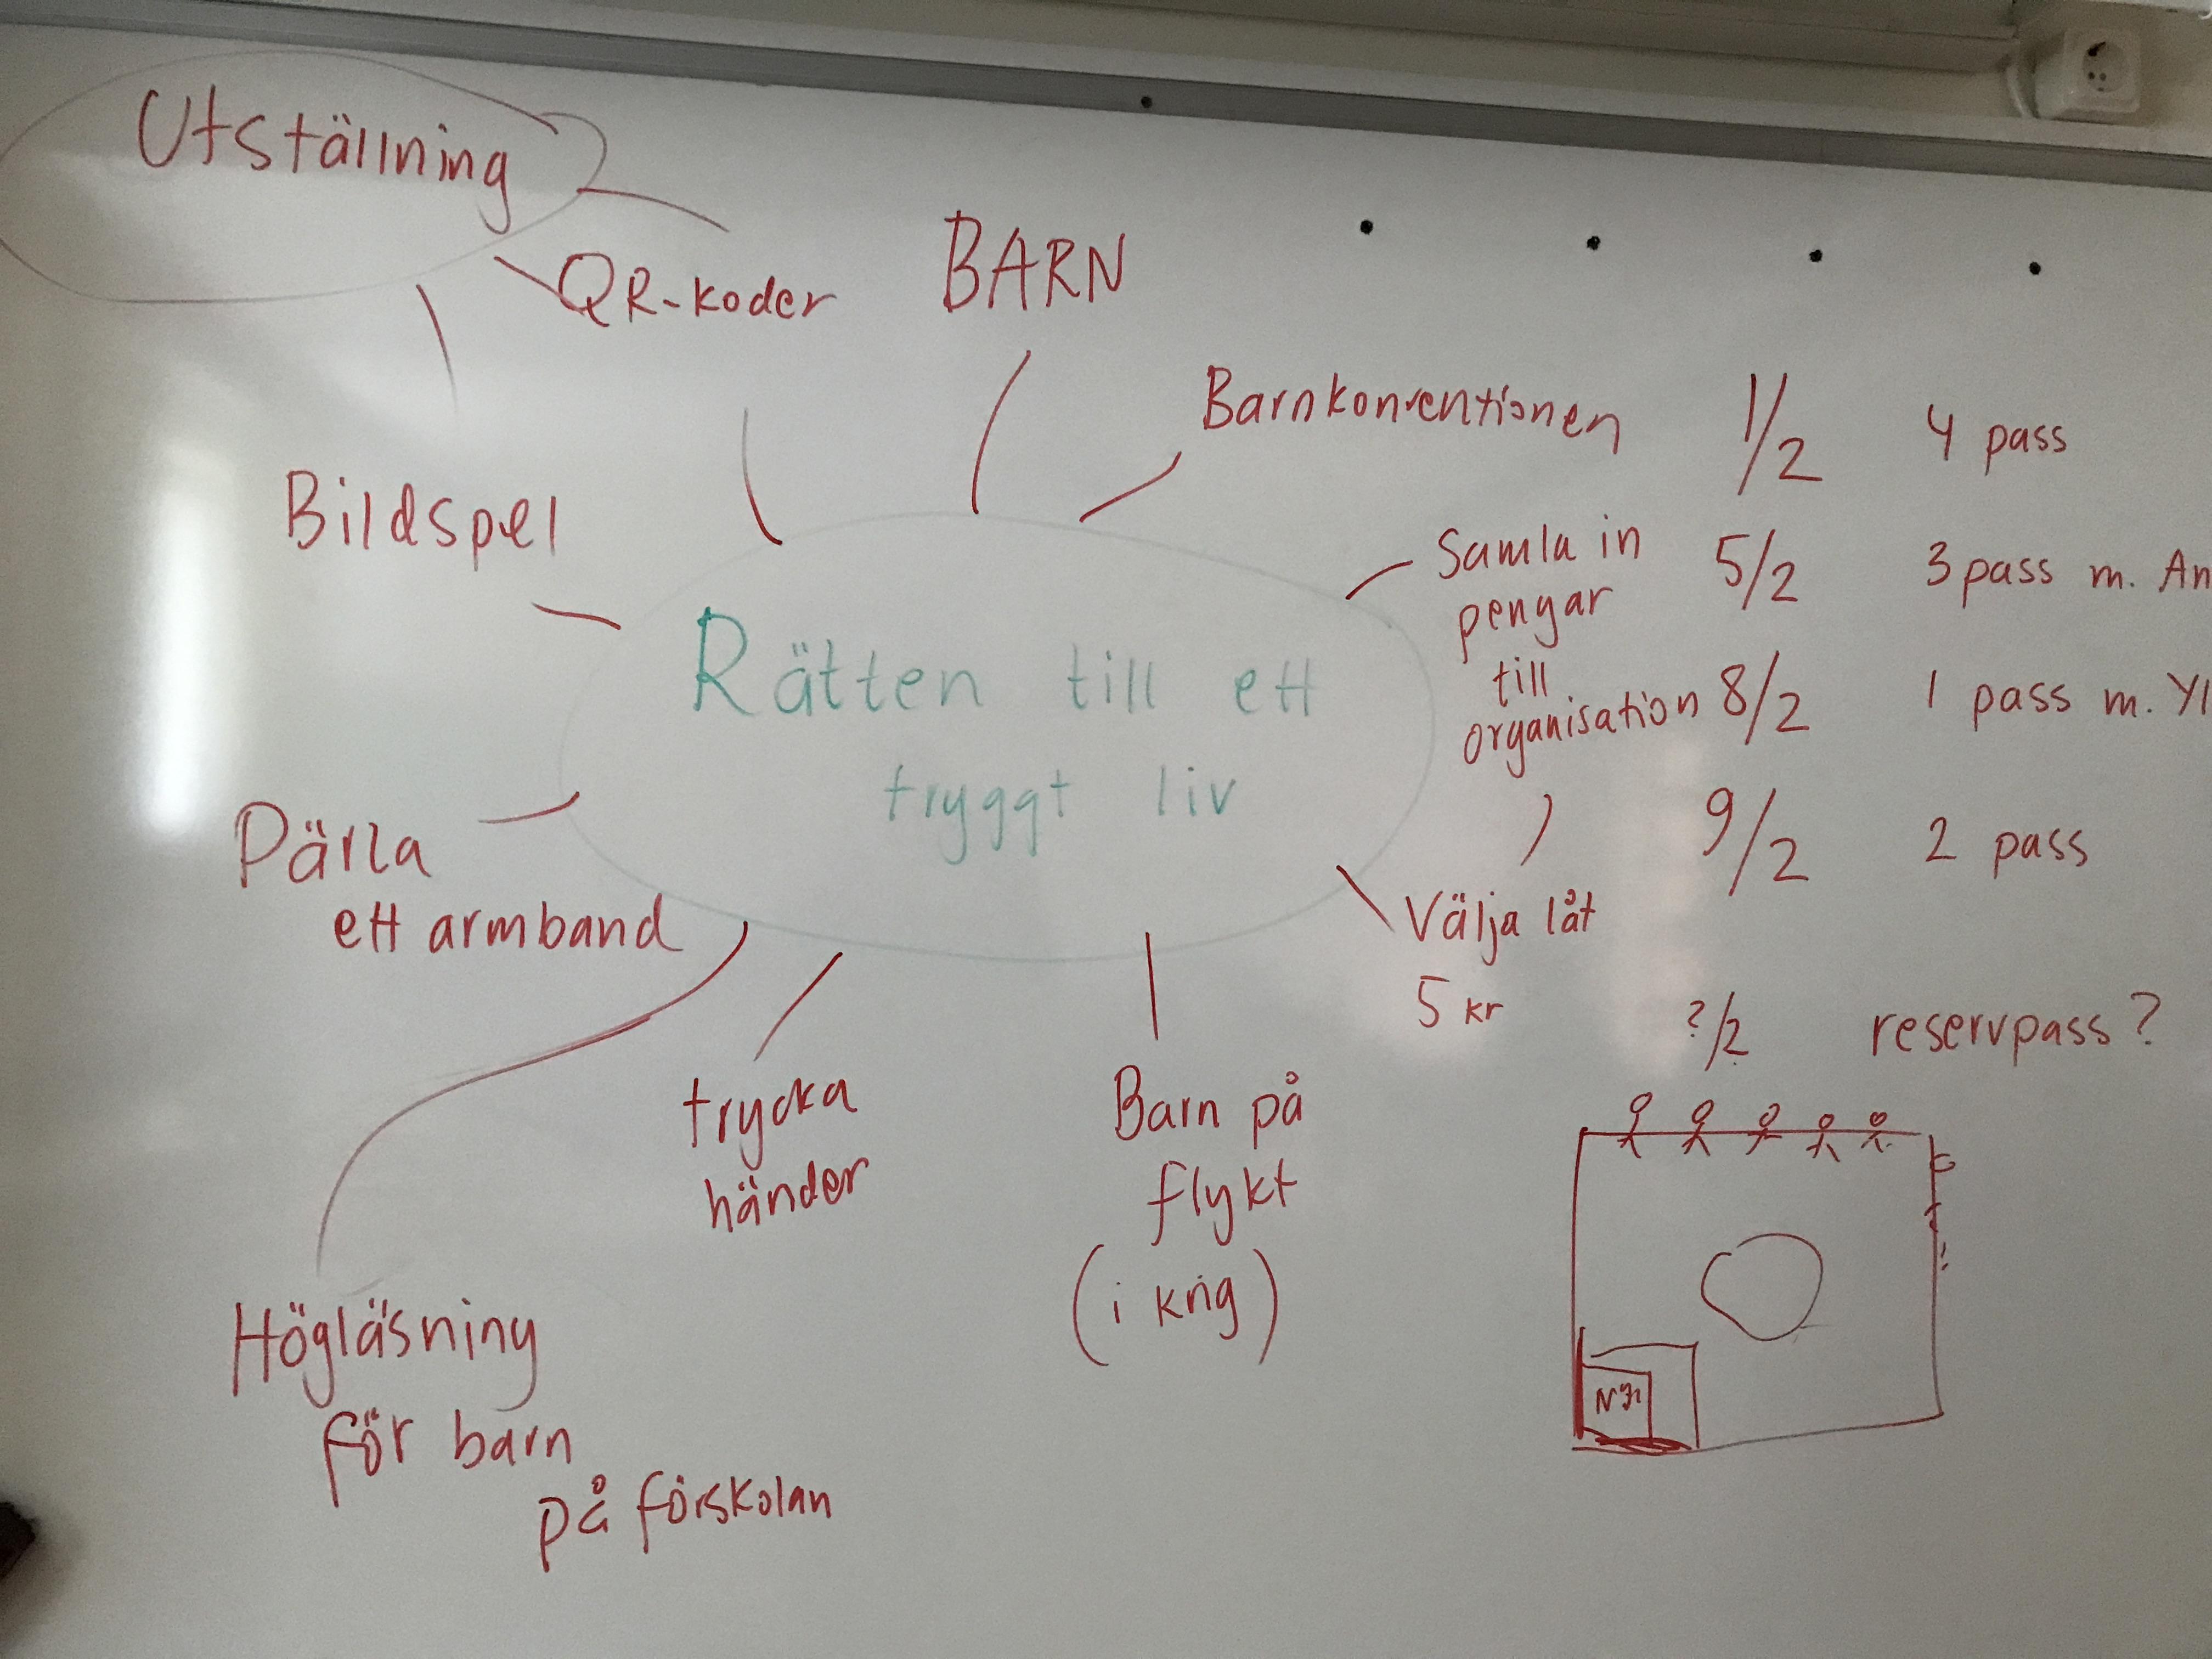 Utställning
QR-koder
BARN
Bildspel
Barnkonventionen
Samla in
pengar
till
organisation
Välja låt
5 kr
Rätten till ett
tryggt liv
Pärla
ett armband
trycka
händer
Barn på
flykt
(i krig)
Högläsning
för barn
på förskolan
1/2 4 pass
5/2 3 pass m. An
8/2 1 pass m. Yl
9/2 2 pass
?/2 reservpass?